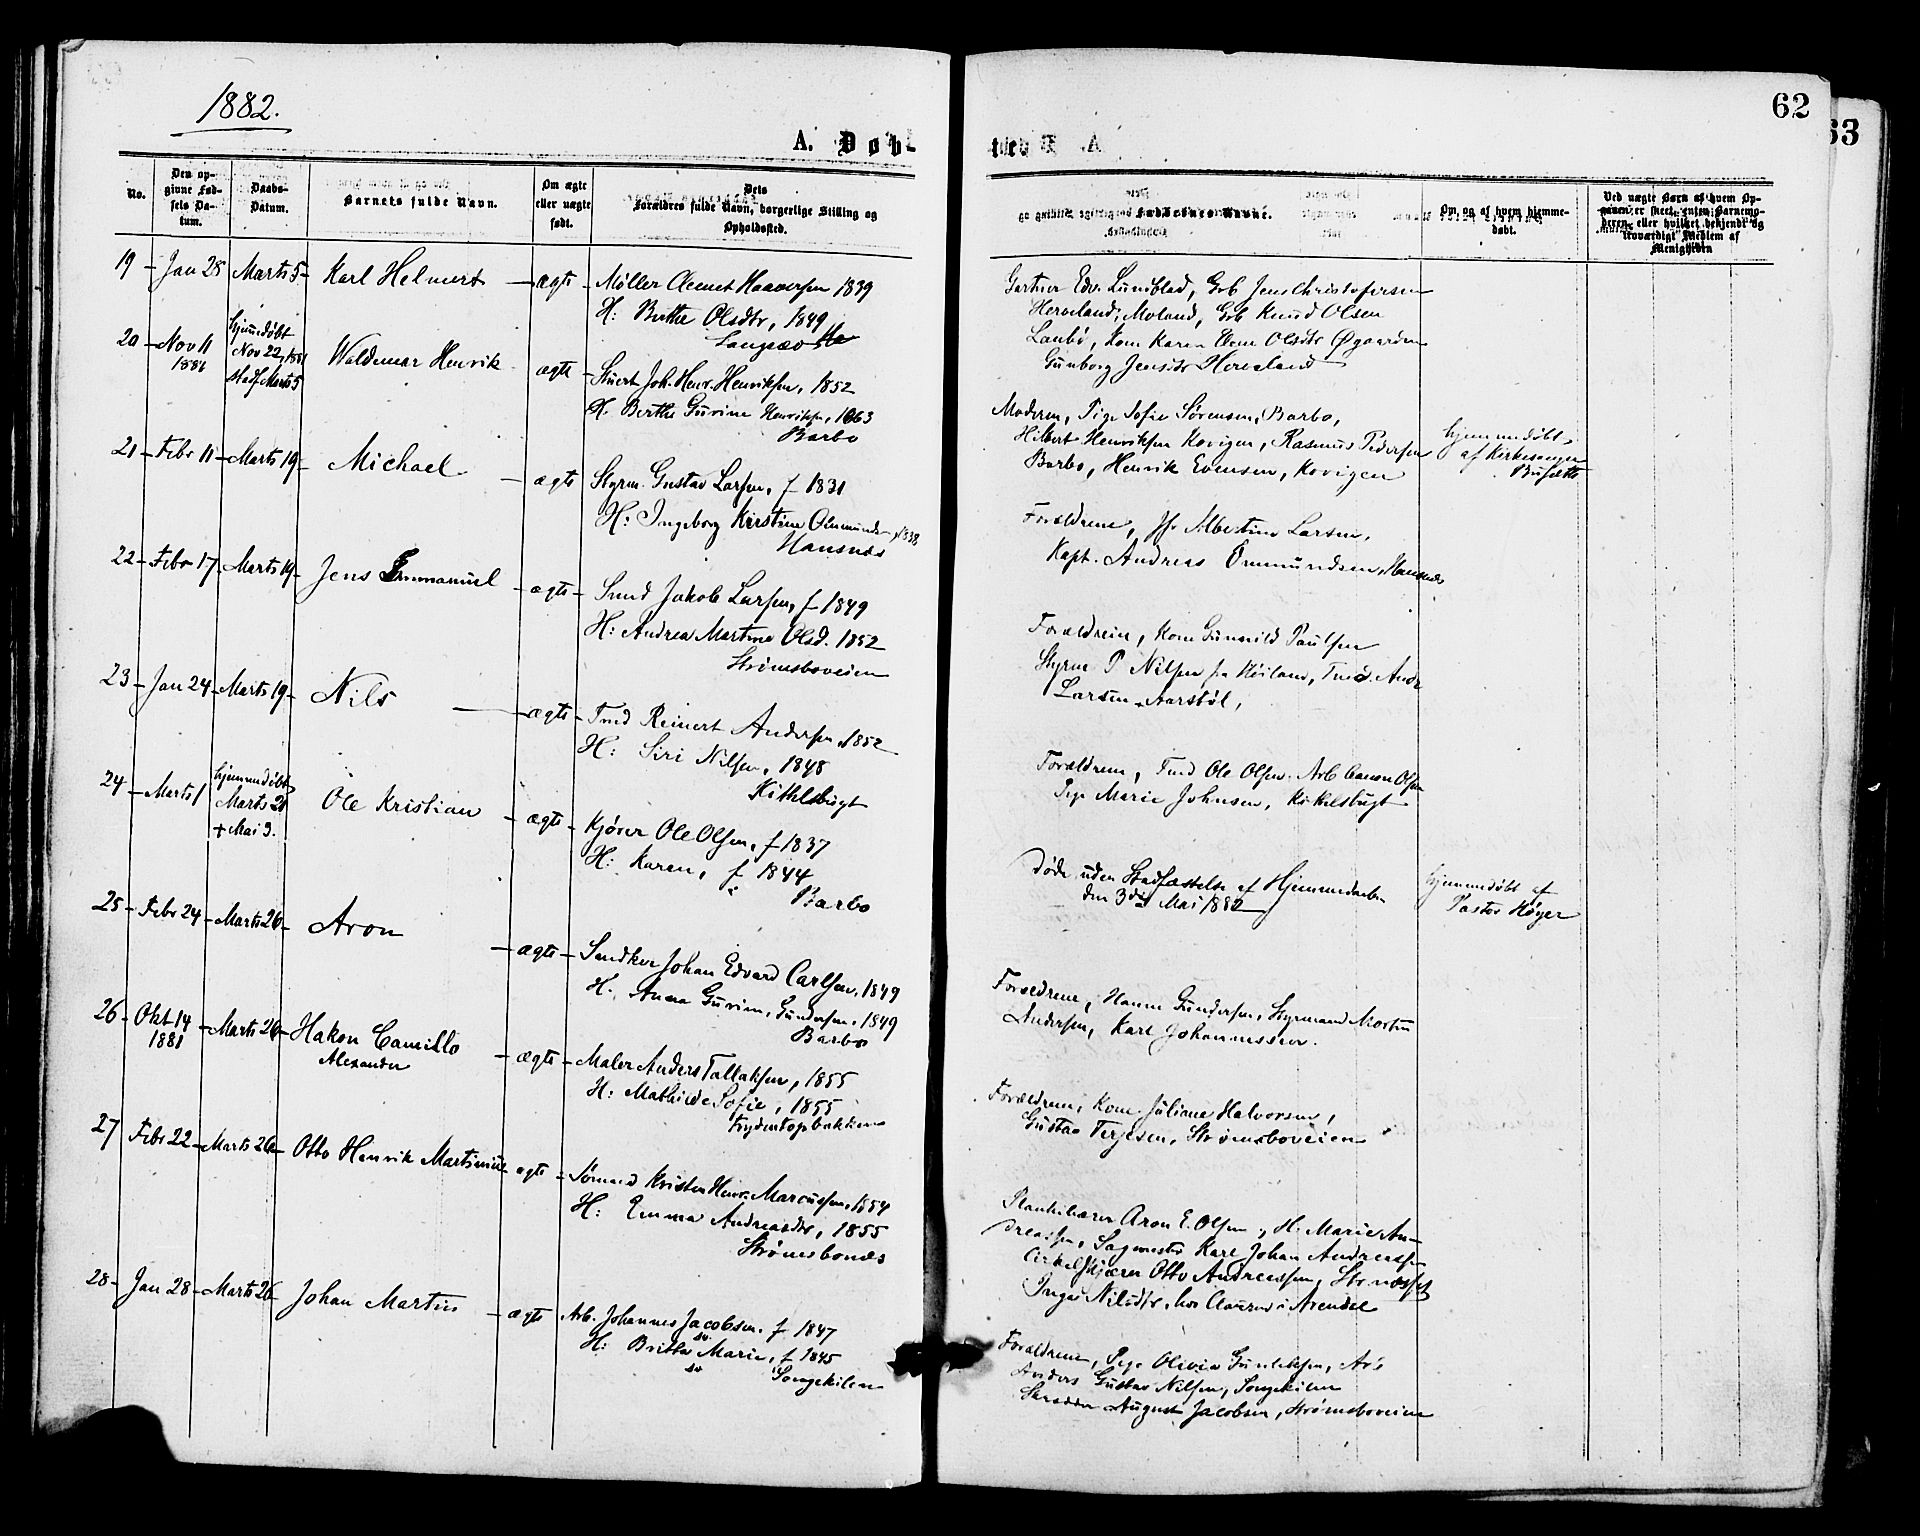 1882.
62
63
A. Døbt
No.
Den op-
givne Fød-
sels Da-
tum.
Daabs-
Datum.
Barnets fulde Navn.
Om ægte
eller uægte
født.
Dets
Forældres fulde Navn, borgerlige Stilling og
Opholdssted.
Faddernes Navne.
Om og af hvem hjemme-
døbt.
Ved uægte Børn af hvem Op-
gaven er skeet, enten Barnemo-
deren eller hvilket bekjendt og
troværdigt Medlem af
Menigheden
19 - Jan 28 - Marts 5 - Karl Helmert - ægte - Møller Clemet Haaversen 1839
H: Berthe Olsdtr, 1849
Langsæv
Gartner Edv. Lundblad, Grb Jens Christofersen
Herveland, Moland, Grb Knud Olsen
Lanbø, Kom Karen Olsdtr Øgaarden
Gunborg Jensdtr Herveland
20 - Nov 11 1881
hjemmedøbt
Nov 22, 1881
stadf. Marts 5
Waldemar Henrik ægte - Stuert Joh. Henr. Henriksen, 1852
H. Berthe Gurine Henriksen, 1863
Barbo
Moderen, Pige Sofie Sørensen, Barbo,
Hilbert Henriksen Kovigen, Rasmus Pedersen
Barbo, Henrik Evensen, Kovigen
hjemmedøbt
af Kirkesanger
21 - Febr 11 - Marts 19 - Michael - ægte - Styrm. Gustav Larsen, f 1831
H: Ingeborg Kirstine Ommunds, 1838
Hansnæs
Forældrene, Jfr Albertine Larsen,
Kapt. Andreas Ommundsen, Hansnæs
22 - Febr 17 - Marts 19 - Jens Emmanuel - ægte - Smed Jakob Larsen, f 1849
H: Andrea Martine Olsd. 1852
Strømsboveien
Forældrene, Kone Gunnild Paulsen
Styrm P Nilsen fra Høiland, Tmd. Andr
Larsen Aarstøl,
23 - Jan 24 - Marts 19 - Nils - ægte - Tmd Reinert Andersen, 1852
H: Siri Nilsen, 1848
Kittelsbugt
Forældrene, Tmd Ole Olsen. Arb Olsen
Pige Marie Johnsen, Kittelsbugt
24 - Marts 1
hjemmedøbt
Marts 21
+ Mai 3.
Ole Kristian - ægte - Kjører Ole Olsen, f 1837
H: Karen, f 1844
Barbo
døde uden Stadfæstelse af Hjemmedaaben
den 3die Mai 1882
hjemmedøbt af
Pastor Høyer
25 - Febr 24 - Marts 26 - Aron - ægte - Snedker Johan Edvard Carlsen, 1849
H. Anna Gurine, Gundersen, 1849
Barbo
Forældrene, Hanne Gundersen, Styrmand Morten
Andersen, Karl Johannessen.
26 - Okt 14 1881 - Marts 26 - Hakon Camillo
Alexander - ægte - Maler Anders Tallaksen, 1855
H: Mathilde Sofie, 1855
Frydentopbakken
Forældrene, Kone Juliane Halvorsen,
Gustav Terjesen, Strømsboveien
27 Febr 22 - Marts 26 - Otto Henrik Martinius - ægte - Sømand Kristen Henr. Marcussen, 1854
H: Emma Andreasdtr, 1855
Strømsbonæs
Plankebærer Aron E. Olsen, H. Marie An-
dreasen, Sagmester Karl Johan Andreassen
Cirkelskjærer Otto Andreassen, Str næsset
Inga Nilsdtr, hos i Arendal
28 - Jan 28 - Marts 26 - Johan Martin - ægte Arb. Johannes Jacobsen. f 1847
H: Britha Marie, f 1845
Songekilen
Forældrene, Pige Olivia Gundersen, Arb
Anders Gustav Nilsen, Songekilen
Skrædder August Jacobsen, Strømsboveien